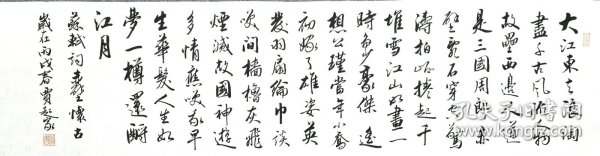 大江東去浪淘
盡千古風流人物
故壘西邊人道
是三國周郎赤
壁亂石穿空驚
濤拍岸捲起千
堆雪江山如畫一
時多少豪傑遙
想公瑾當年小喬
初嫁了雄姿英
發羽扇綸巾談
笑間檣櫓灰飛
煙滅故國神遊
多情應笑我早
生華髮人生如
夢一樽還酹
江月
蘇軾詞赤壁懷古
歲在丙戌
孔夫子旧书网